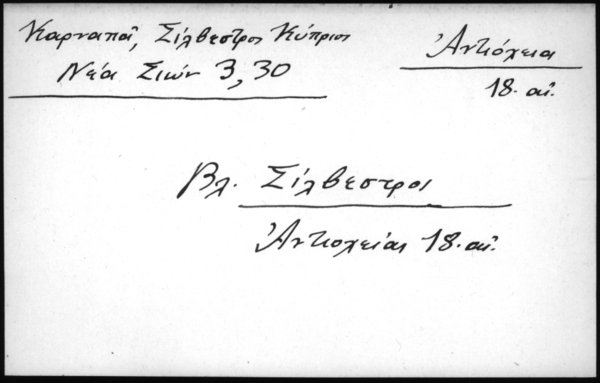 Καρναπᾶ, Σίλβεστρος Κύπριος
Νέα Σιών 3, 30
Ἀντιόχεια
18. αἰ.
Βλ. Σίλβεστρος
Ἀντιοχείας 18. αἰ.